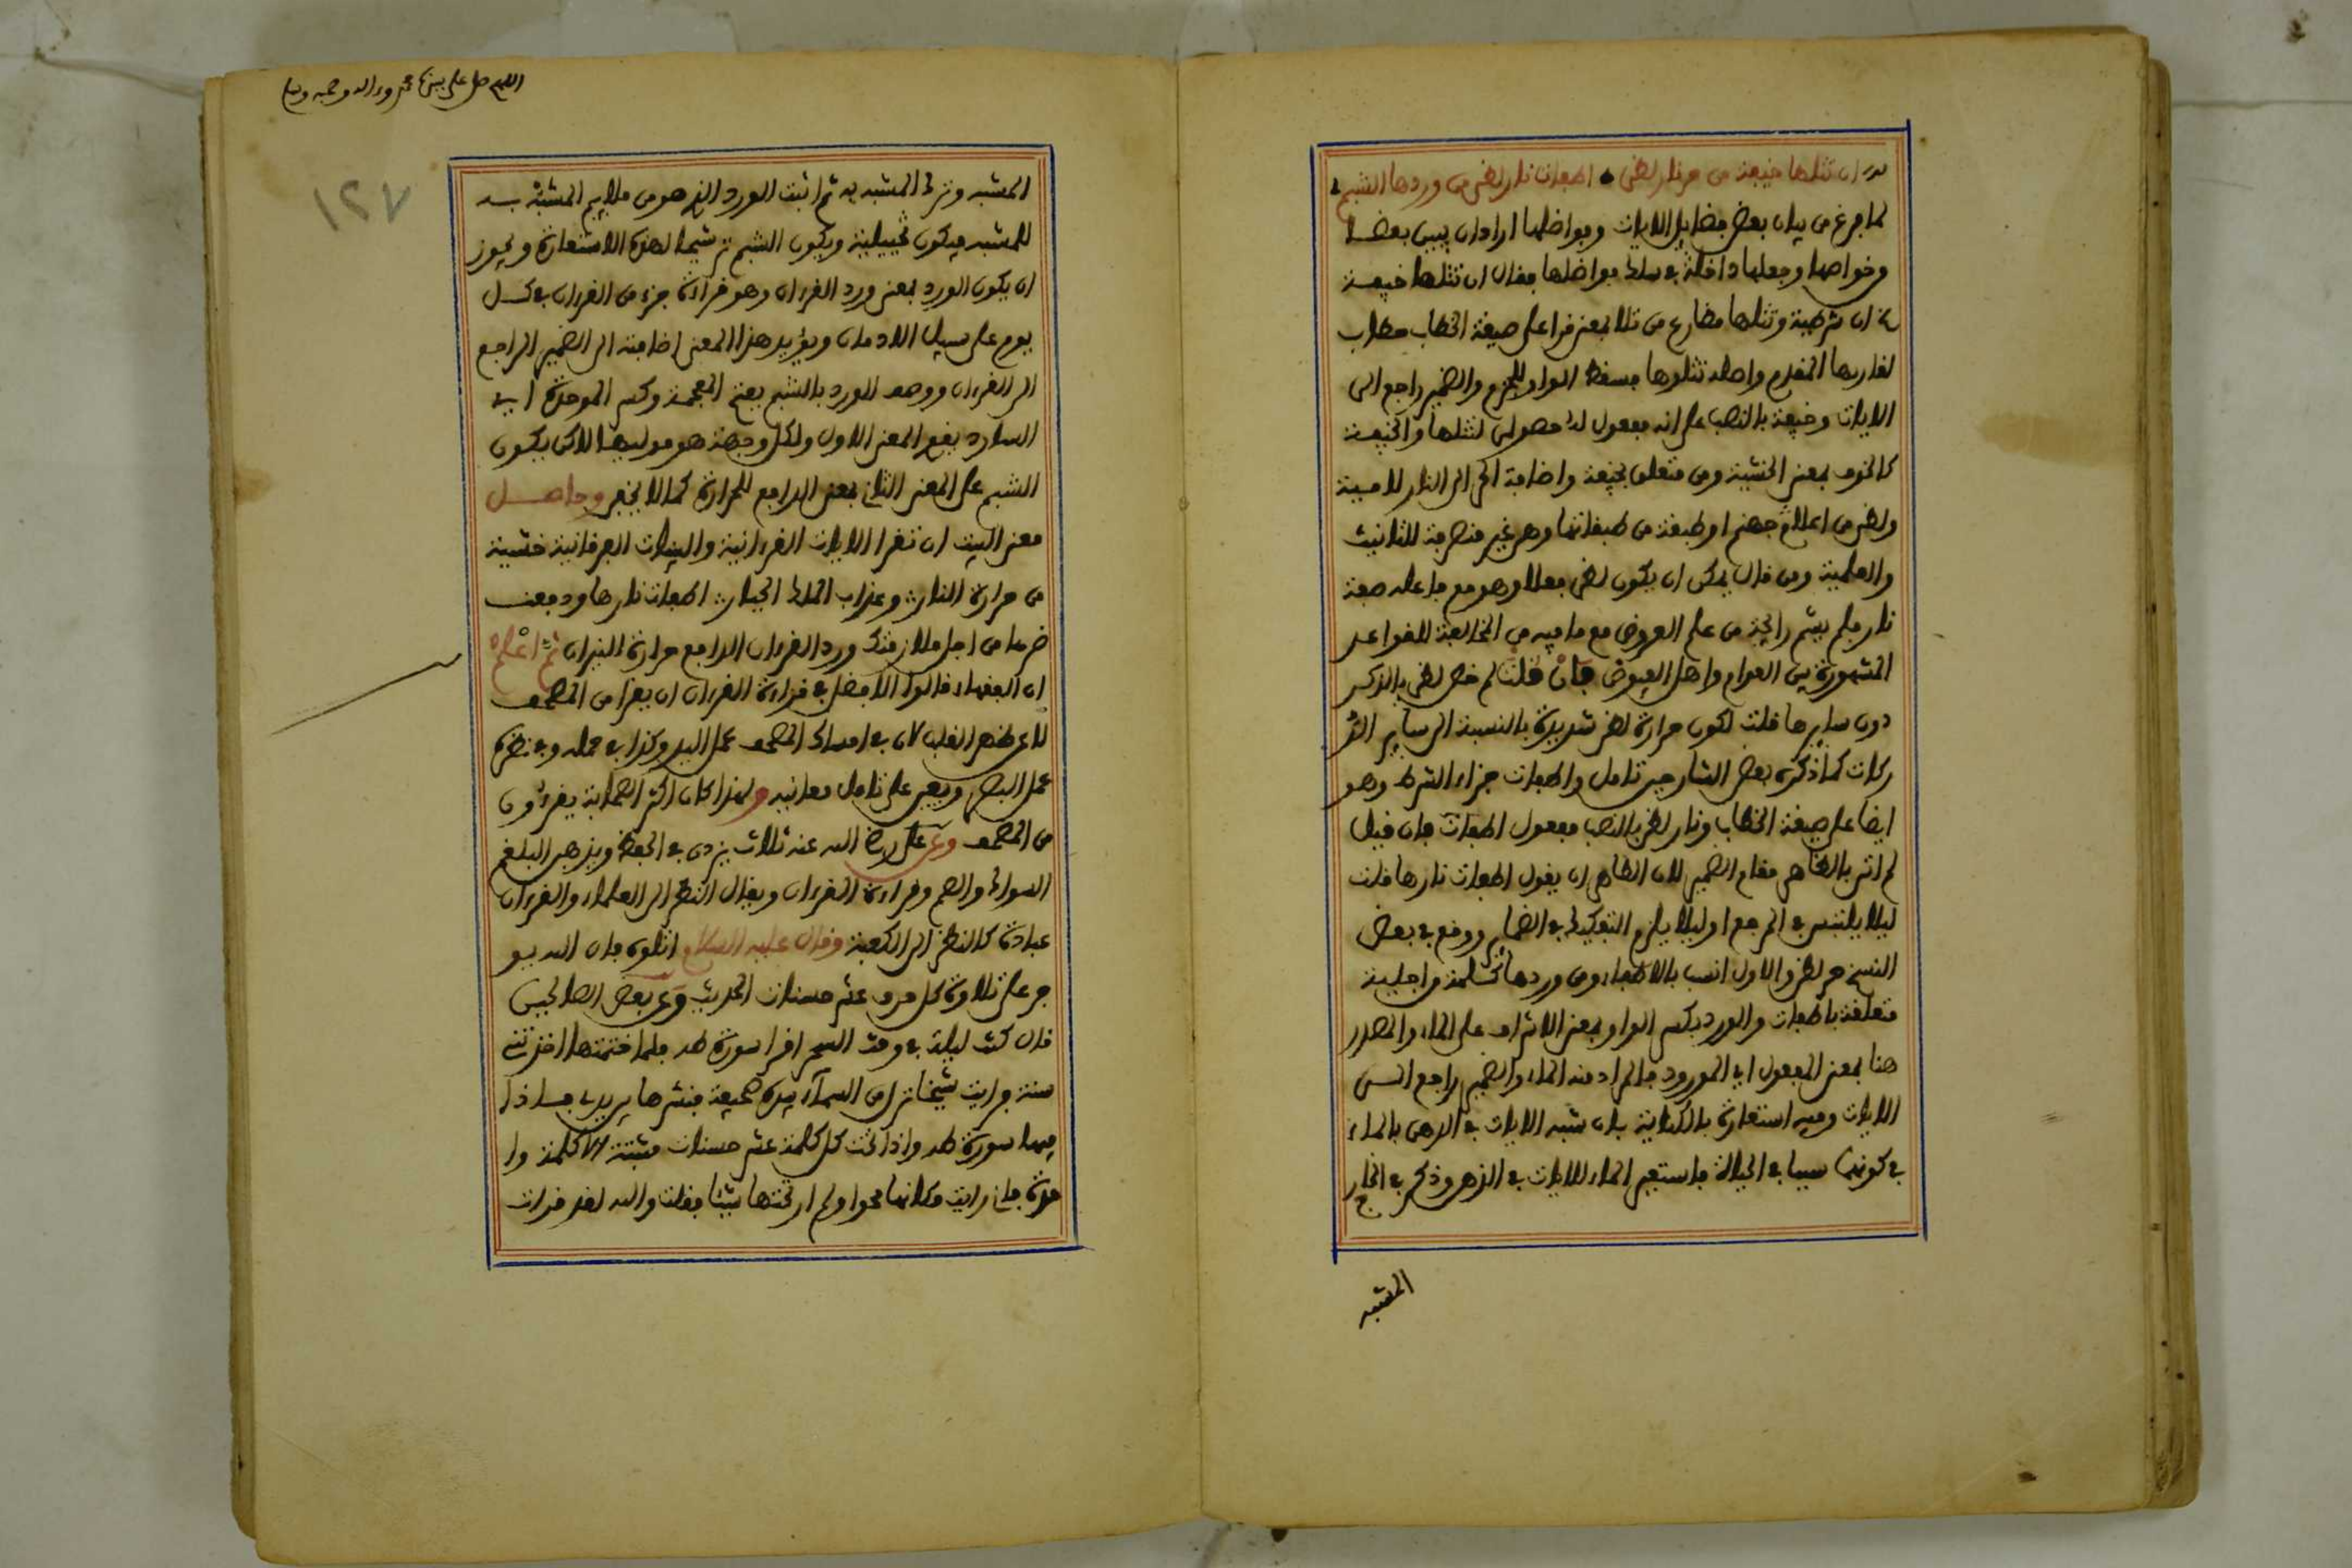 ان تتلها خيفة من حر نار لظى اطفات نار لظى من وردها الشبم
لما فرغ من بيان بعض فضايل الايات وفواضلها اراد ان يبين بعضا
وخواصها وجعلها داخلة في سلك فواضلها فقال ان تتلها خيفة
ان شرطية وتتلها مضارع من تلا بمعنى قرا على صيغة الخطاب خطاب
لقاريها المقدم واصله تتلوها فسقط الواو للجزم والضمير راجع الى
الايات وخيفة بالنصب على انه مفعول له حصولى لتتلها والخيفة
كالخوف بمعنى الخشية ومن متعلق بخيفة واضافة الحر الى النار لامية
ولظى من اعلام جهنم او طبقة من طبقاتها وهي غير منصرفة للتانيث
والعلمية ومن قال يمكن ان يكون لظى فعلا وهو مع فاعله صفة
نار فلم يشم رايحة من علم العروض مع ما فيه من المخالفة للقواعد
المشهورة بين العوام واهل العروض فان قلت لم خص لظى بالذكر
دون سايرها قلت لكون حرارة لظى شديدة بالنسبة الى ساير الد
ركات كما ذكره بعض الشارحين تامل واطفات جزاء الشرط وهو
ايضا على صيغة الخطاب ونار لظى بالنصب مفعول اطفات فان قيل
لم اتى بالظاهر مقام الضمير لان الظاهر ان يقول اطفات نارها قلت
ليلا يلتبس في المرجع او ليلا يلزم التفكيك في الضماير ووقع في بعض
النسخ حر لظى والاول انسب بالاطفاء ومن وردها كلمة من اجلية
متعلقة باطفات والورد بكسر الواو بمعنى الاشراف على الماء والمصدر
هنا بمعنى المفعول اي المورود فالمراد منه الماء والضمير راجع الى
الايات وفيه استعارة بالكناية بان شبه الايات في الذهن بالماء
في كونهما سببا في الحياة فاستعير الماء للايات في الذهن وذكر في الخارج
المشبه
اللهم صل على نبينا محمد وءاله وصحبه وسلم
١٢٧
المشبه وترك المشبه به ثم اثبت الورد الذي هو من ملايم المشبه به
للمشبه فيكون تخييلية ويكون الشبم ترشيحا لهذه الاستعارة ويجوز
ان يكون الورد بمعنى ورد القرءان وهو قراءة جزء من القرءان في كل
يوم على سبيل الادمان ويؤيد هذا المعنى اضافته الى الضمير الراجع
الى القرءان ووصف الورد بالشبم بفتح المعجمة وكسر الموحدة اي
البارد يقع المعنى الاول ولكل وجهة هو موليها لاكن يكون
الشبم على المعنى الثاني بمعنى الدافع للحرارة كما لا يخفى وحاصل
معنى البيت ان تقرا الايات القرءانية والبينات الفرقانية خشية
من حرارة النار وعذاب الملك الجبار اطفات نارها ودفعت
ضرها من اجل ملازمتك ورد القرءان الدافع حرارة النيران ثم اعلم
ان الفقهاء قالوا الافضل في قراءة القرءان ان يقرا من المصحف
لا عن ظهر القلب لان في امساك المصحف عمل اليد وكذا في حمله وفي نظره
عمل البصر ويعين على تامل معانيه ولهذا كان اكثر الصحابة يقرءون
من المصحف وعن علي رضي الله عنه ثلاث يزدن في الحفظ ويذهبن البلغم
السواك والصوم وقراءة القرءان ويقال النظر الى العلماء والقرءان
عبادة كالنظر الى الكعبة وقال عليه السلام اتلوه فان الله يو
جر على تلاوته كل حرف عشر حسنات الحديث وعن بعض الصالحين
قال كنت ليلة في وقت السحر اقرا سورة طه فلما ختمتها اخذتني
سنة فرايت شيخا نزل من السماء بيده صحيفة فنشرها بين يدي فاذا
فيها سورة طه واذا تحت كل كلمة عشر حسنات مثبتة الا كلمة وا
حدة فاني رايت مكانها محوا ولم ار تحتها شيئا فقلت والله لقد قرات